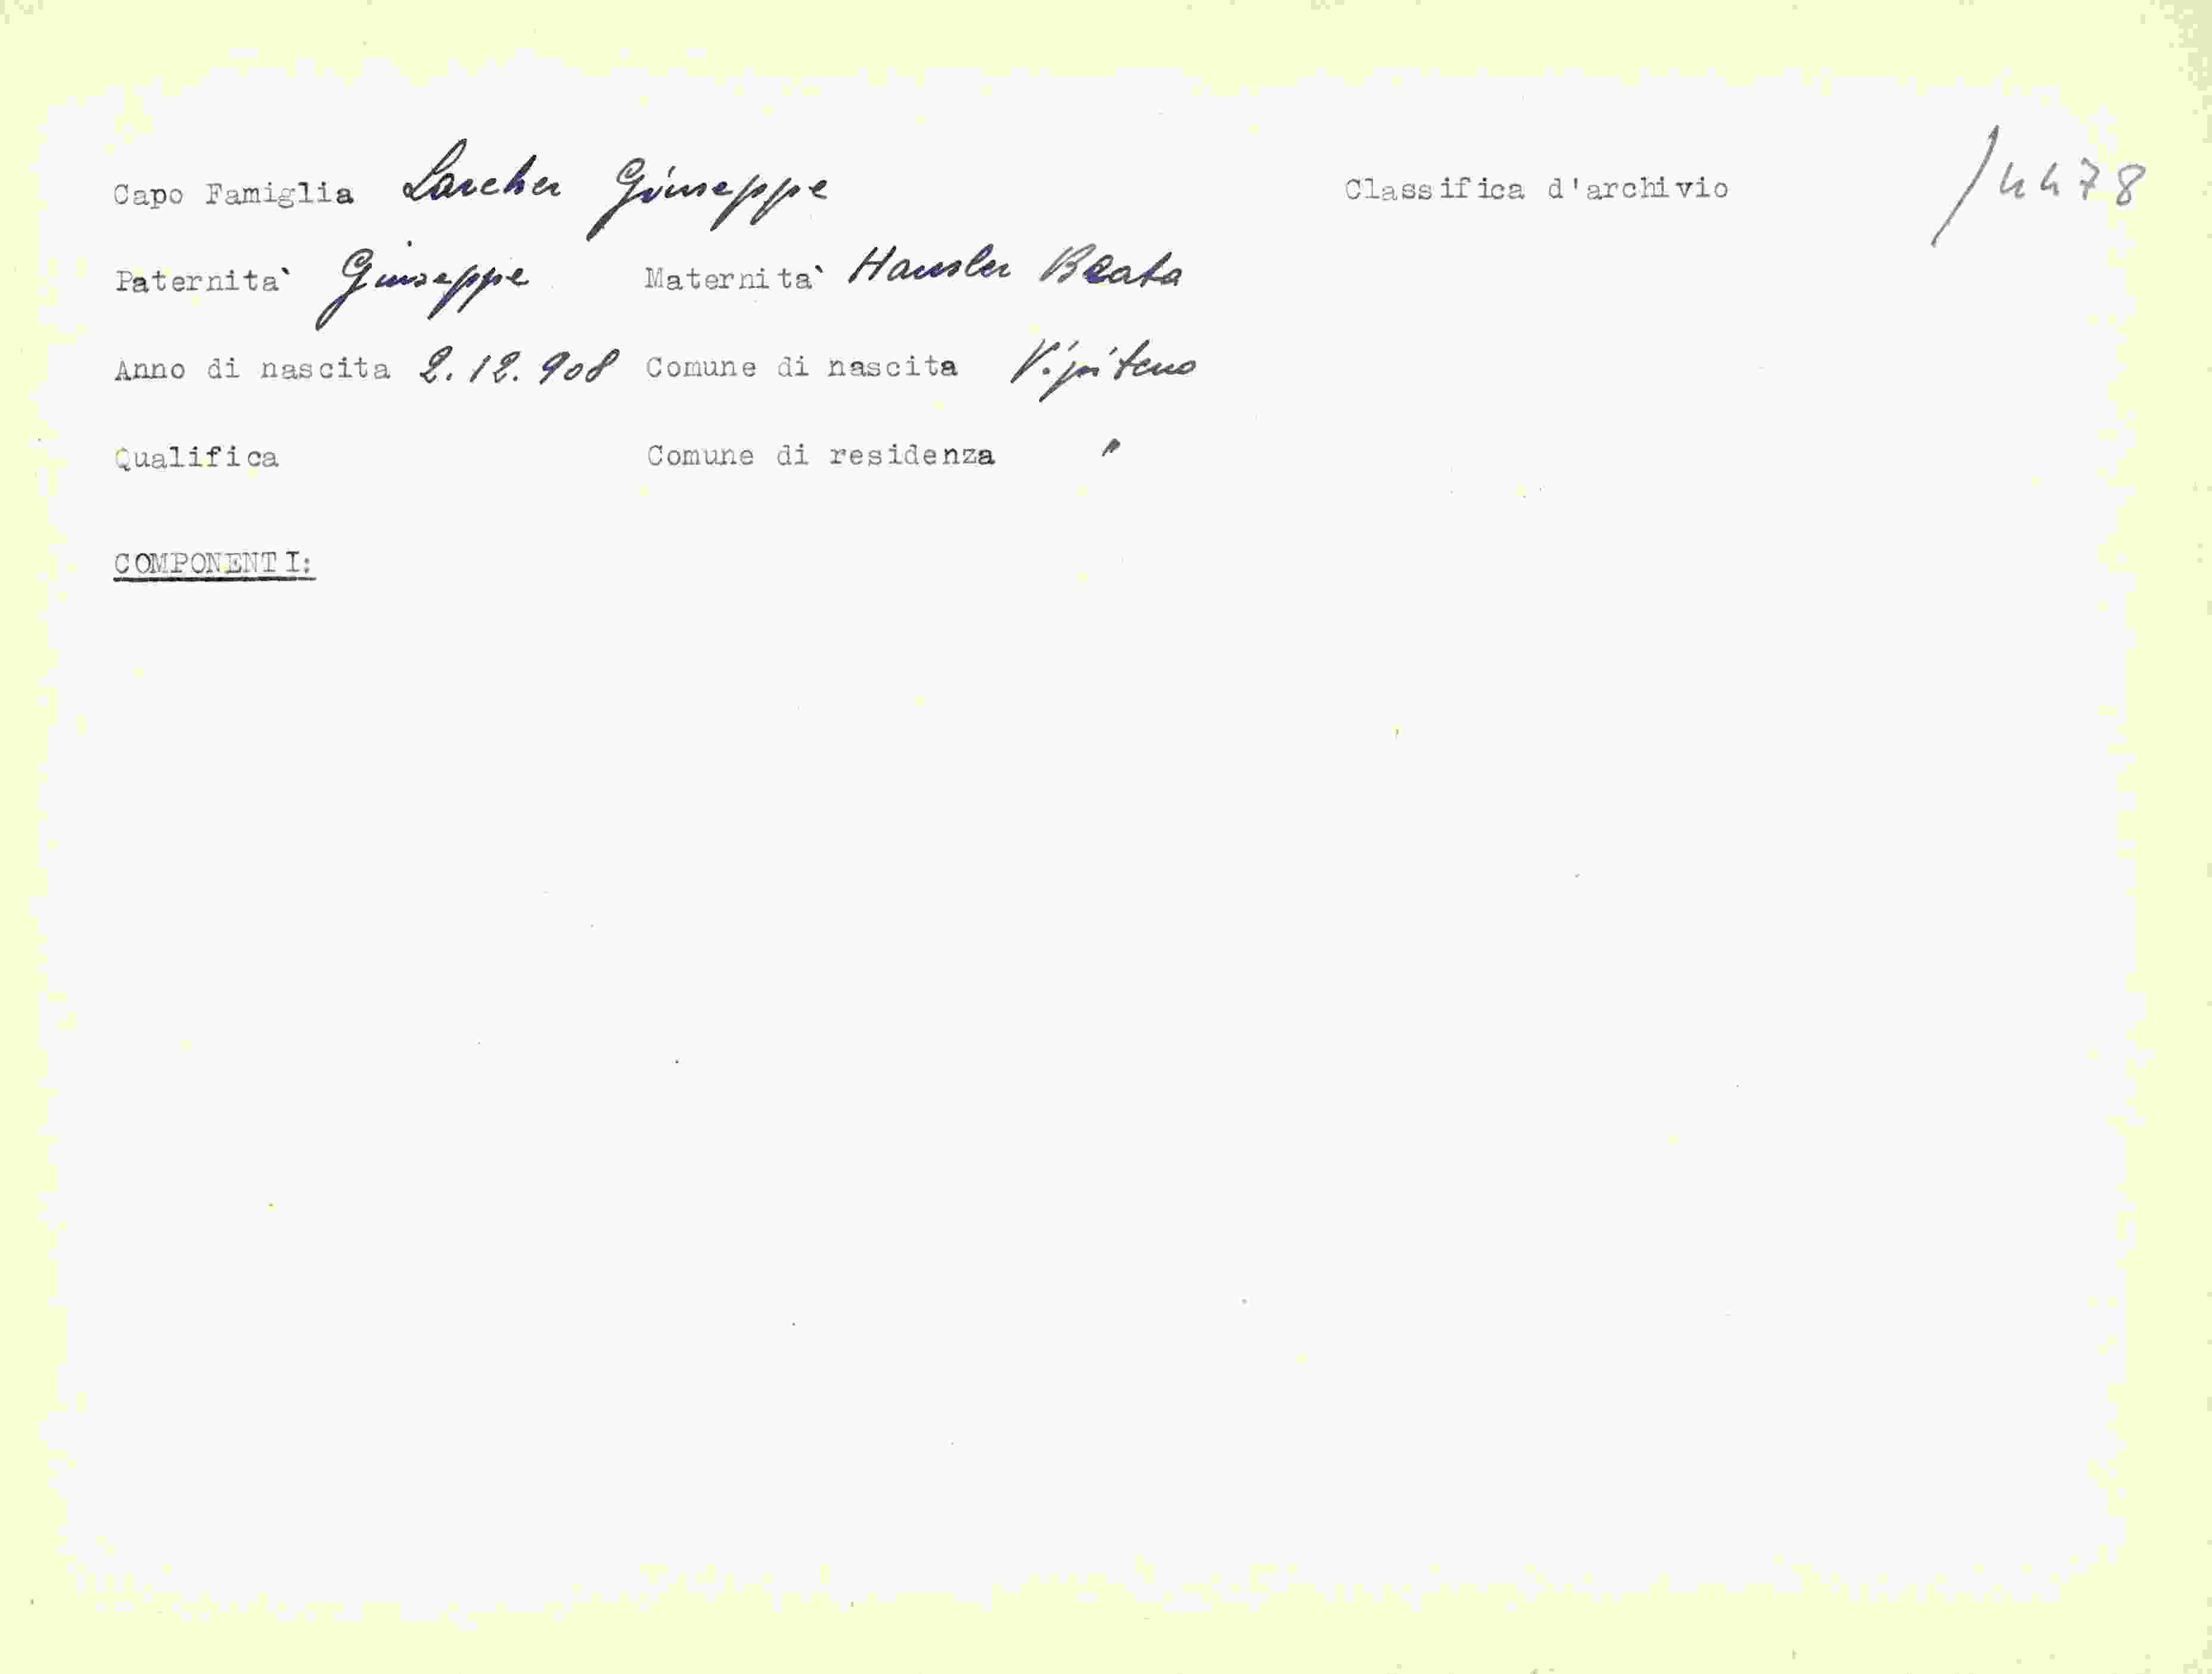 Capo Famiglia Larcher Giuseppe Classifica d'archivio /4478
Paternita` Giuseppe Maternita` Hausler Beata
Anno di nascita 2.12.908 Comune di nascita Vipiteno
Qualifica Comune di residenza "
COMPONENTI: